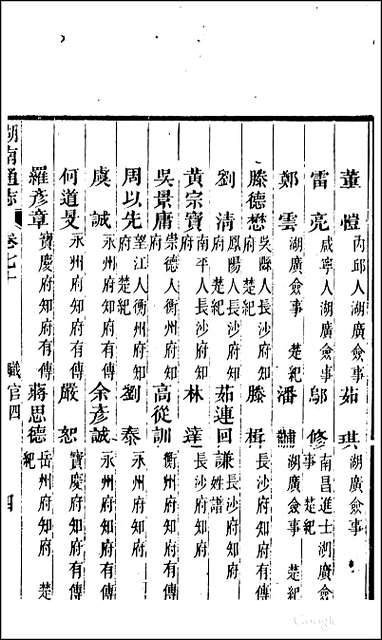 董愷 內邱人湖廣僉事
茹琪 湖廣僉事
雷亮 咸寧人湖廣僉事
鄔修 南昌進士湖廣僉事 楚紀
鄭雲 湖廣僉事 楚紀
潘黼 湖廣僉事 楚紀
滕德懋 吳縣人長沙府知府 楚紀
滕楫 長沙府知府有傳
劉清 鳳陽人長沙府知府 楚紀
茹連回 長沙府知府 謙姓譜
黃宗寶 南平人長沙府知府
林達 長沙府知府
吳景庸 崇德人衡州府知府
高從訓 衡州府知府有傳
周以先 望江人衡州府知府 楚紀
劉泰 永州府知府
虞誠 永州府知府有傳
余彥誠 永州府知府有傳
何道旻 永州府知府有傳
嚴恕 寶慶府知府有傳
羅彥章 寶慶府知府有傳
蔣思德 岳州府知府 楚紀
湖南通志 卷七十 職官四 四
Google